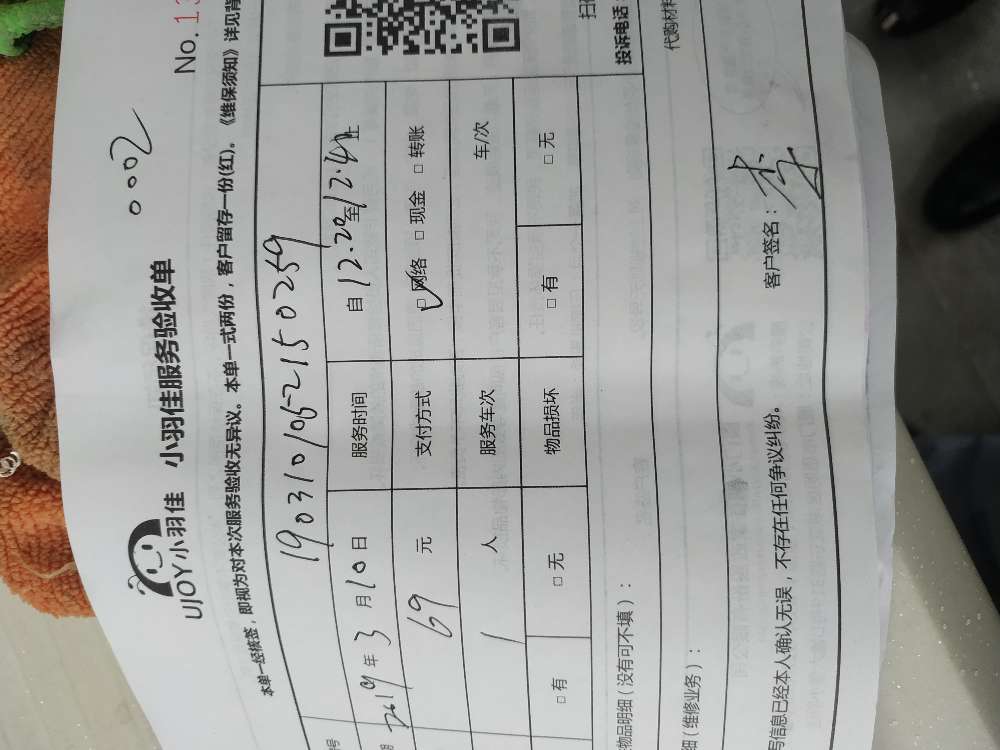 0002
No. 13
UJOY小羽佳 小羽佳服务验收单
本单一经核签，即视为对本次服务验收无异议。本单一式两份，客户留存一份(红)。《维保须知》详见背
号 190310196215 0259
期 2019年3月10日 服务时间 自12.20至12.40止
69元 支付方式 ☑网络 □现金 □转账
1人 服务车次 车/次
□有 □无 物品损坏 □有 □无
扫
投诉电话
物品明细（没有可不填）：
代购材料
细（维修业务）：
写信息已经本人确认无误，不存在任何争议纠纷。 客户签名：李